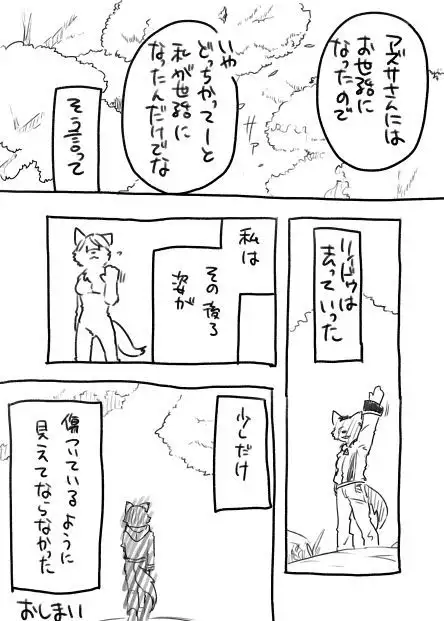 アズサさんには
お世話に
なったので
いや
どっちかってーと
私が世話に
なったんだけどな
そう言って
リードゥは
去っていった
私は
その後ろ
姿が
少しだけ
傷ついているように
見えてならなかった
おしまい